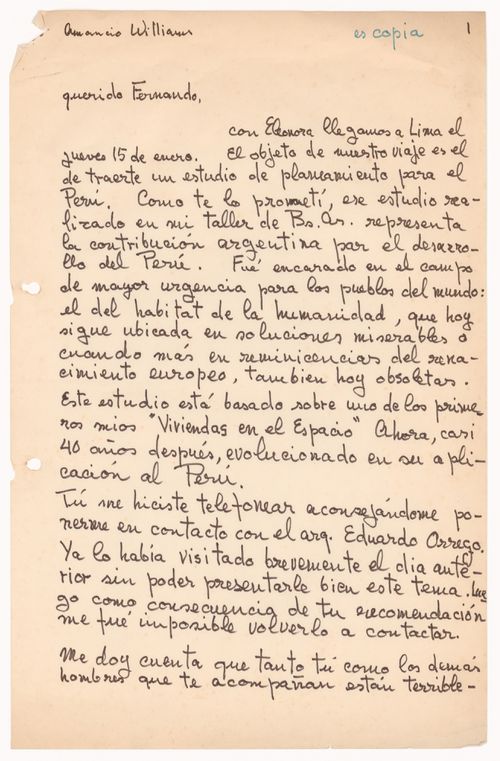 Amancio Williams es copia 1
querido Fernando,
con Eleonora llegamos a Lima el
jueves 15 de enero. El objeto de nuestro viaje es el
de traerte un estudio de planeamiento para el
Perú. Como te lo prometí, ese estudio rea-
lizado en mi taller de Bs. As. representa
la contribución argentina par el desarro-
llo del Perú. Fué encarado en el campo
de mayor urgencia para los pueblos del mundo:
el del habitat de la humanidad, que hoy
sigue ubicada en soluciones miserables o
cuando más en reminicencias del rena-
cimiento europeo, tambien hoy obsoletas.
Este estudio está basado sobre uno de los prime-
ros mios "Viviendas en el Espacio" Ahora, casi
40 años después, evolucionado en su apli-
cación al Perú.
Tú me hiciste telefonear aconsejándome po-
nerme en contacto con el arq. Eduardo Orrego.
Ya lo había visitado brevemente el dia ante-
rior sin poder presentarle bien este tema. Lue
go como consecuencia de tu recomendación
me fué imposible volverlo a contactar.
Me doy cuenta que tanto tú como los demás
hombres que te acompañan están terrible-